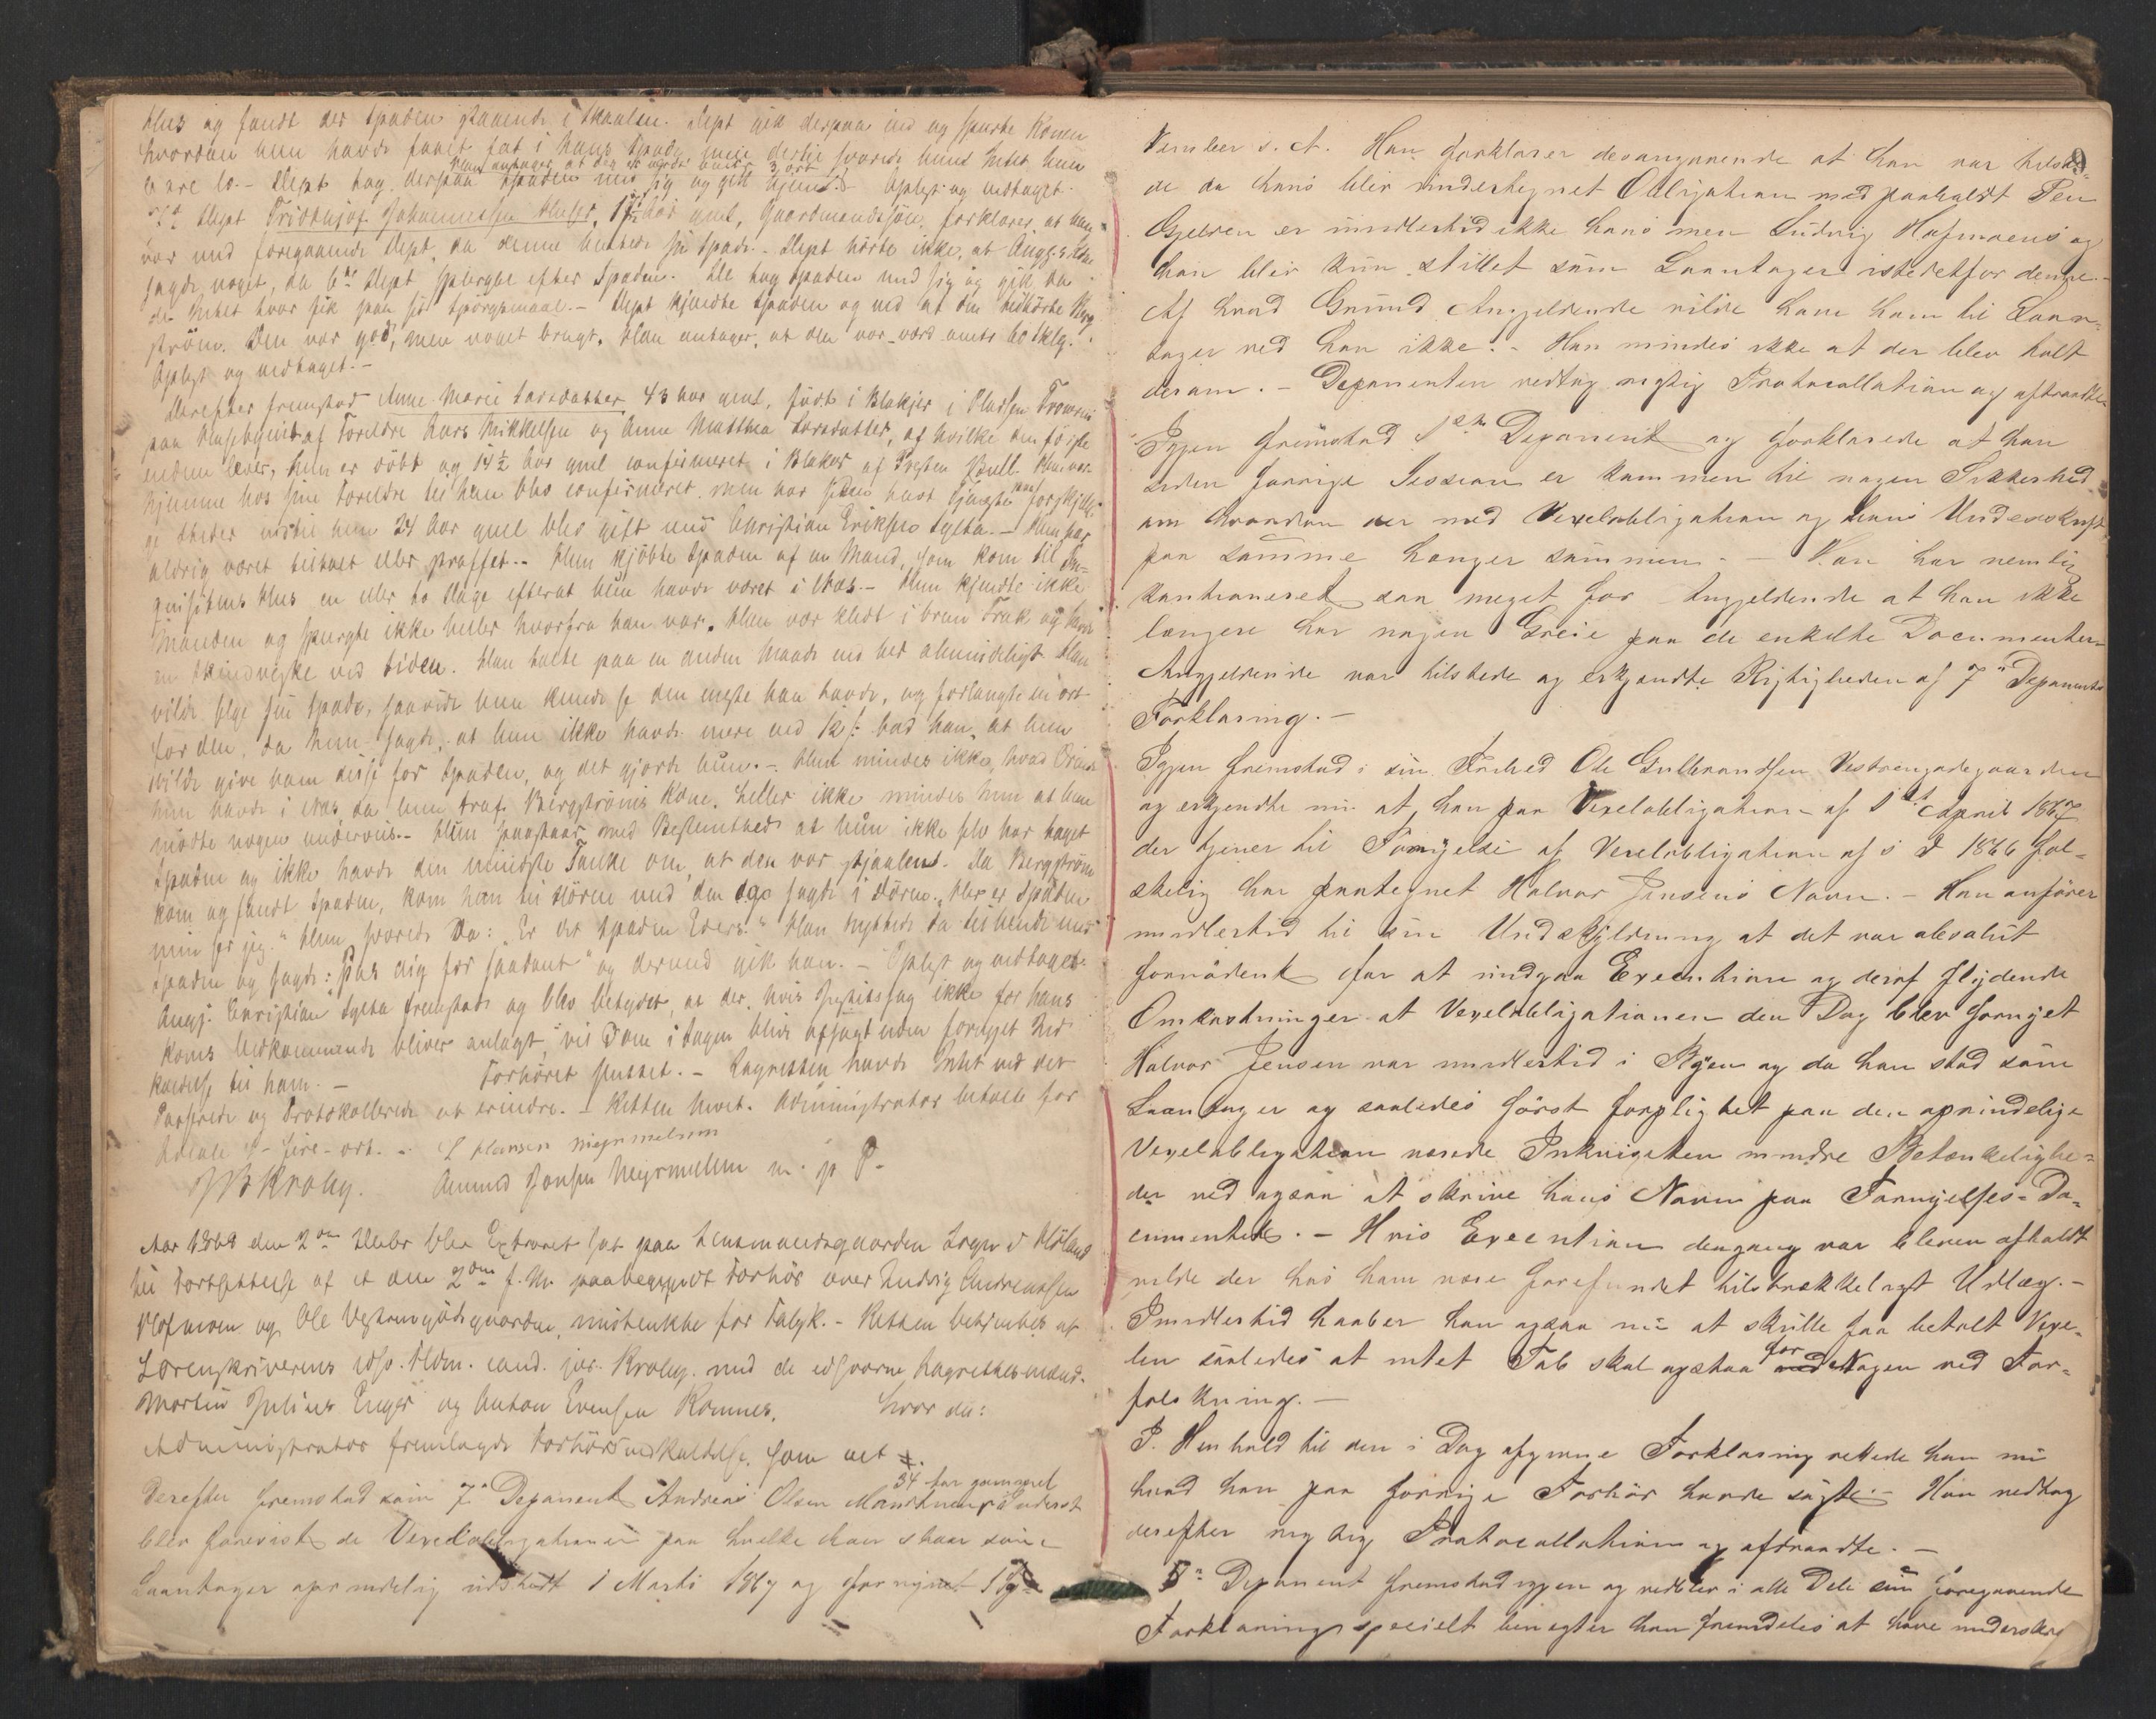 Huus og fandt der Spaden staaende i Skaalen. Dept gik derpaa ind og spurte Konen
hvordan hun havde faaet fat i hans Spade, men dertil svarede hun Intet, hun
bare lo. - Dept tog derpaa Spaden med sig og gik hjem. - Oplæst og vedtaget.
Han antager, at den er værdt 3 ort
Dept Fridthjof Johannessen Huser, 17½ Aar gml, Gaardmandssøn, forklarer, at han
var med foregaaende Dept, da denne hentede sin Spade. - Dept hørte ikke, at Angj.s Kone
sagde noget, da 6te Dept spurgte efter Spaden. De tog Spaden med sig og gik, da
de Intet Svar fik paa sit Spørgsmaal. - Dept kjendte Spaden og ved at den tilhørte Berg-
strøm. Den var god, men noget brugt. Han antager, at den var værd omtr 60 Sklg.
Oplæst og vedtaget. -
Derefter fremstod Anne Marie Larsdatter 43 Aar gml, født i Blakjer i Pladsen
paa af Forældre Lars Mikkelsen og Anne Matthea Larsdatter, af hvilke den første
endnu lever, hun er døbt og 14½ Aar gml confirmeret i Blakjer af Presten Bull. Hun var
hjemme hos sine Forældre til hun blev confirmeret, men har siden havt Tjeneste paa forskjelli-
ge Steder indtil hun 24 Aar gml blev gift med Christian Eriksen Sylta. - Hun har
aldrig været tiltalt eller straffet. - Hun kjøbte Spaden af en Mand, som kom til In-
qvisitens Hus en eller to Dage efterat hun havde været i Næs. - Hun kjendte ikke
Manden og spurgte ikke heller hvorfra han var. Han var klædt i brun Frak og havde
en Skindveske ved Siden. Han talte paa en anden Maade end her almindeligt. Han
vilde sælge sin Spade, saavidt hun kunde se den eneste han havde, og forlangte en ort
for den, da hun sagde, at hun ikke havde mere end 12 s: bad han, at hun
skulde give ham disse for Spaden, og det gjorde hun. - Hun mindes ikke, hvad Ærinde
hun havde i Næs, da hun traf Bergstrøms Kone, heller ikke mindes hun at hun
mødte nogen underveis. - Hun paastaar med Bestemthed at hun ikke selv har taget
Spaden og ikke havde den mindste Tanke om, at den var stjaalen. Da Bergstrøm
kom og fandt Spaden, kom han til Døren med den og sagde i Døren: "Her er Spaden
min ser jeg." Hun svarede Da: "Er det Spaden Eders." Han da hende med
Spaden og sagde: "Pas dig for saadant" og dermed gik han. - Oplæst og vedtaget.
Angj. Christian Sylta fremstod og blev betydet, at der, hvis Justitssag ikke for hans
Kones Vedkommende bliver anlagt, vil Dom i Sagen blive afsagt uden fornyet Ind-
kaldelse til ham. - Forhøret sluttet. - Lagretten havde Intet ved det
Passerede og Protokollerede at erindre. - Retten hævet. Administrator betalte for
Locale 4 - fire - ort. - L Hansen Mejermelum
JB Kroby. Amund Jonsen Mejermelum m. p P.
Aar 1868 den 2den Decbr blev Extraret sat paa Lensmandsgaarden Løgn i Høland
til Fortsættelse af et den 2den f. M. paabegyndt Forhør over Ludvig Andreassen
Hofmoen og Ole Vestrengsødegaarden, mistenkte for Falsk. - Retten betjentes af
Sorenskriverens edsv. Fuldm. cand. jur. Kroby. med de edsvorne Lagrettesmænd:
Martin Julius Enger og Anton Evensen Romnes. Hvor da:
Administrator fremlagde Forhørsindkaldelse, som vet
34 Aar gammel
Derefter fremstod som 7de Deponent Andreas Olsen
blev forevist de Vexelobligationer paa hvilke han staar som
Laantager oprindelig udstedt 1 Marts 1867 og fornyet 1
Vember s. A. Han forklarer desangaaende at han var tilste-
de da hans blev undertegnet Obligation med paaholdt Pen
Gjelden er imidlertid ikke hans men Ludvig Hofmoens og
han blev kun stillet som Laantager istedetfor denne. -
Af hvad Grund Angjeldende vilde have ham til Laan-
tager ved han ikke. - Han mindes ikke at der blev talt
derom. - Deponenten vedtog rigtig Protocollation og aftraadte.
Igjen fremstod 1ste Deponent og forklarede at han
siden forrige Session er kommen til nogen Sikkerhed
om hvordan der med Vexelobligation og hans Underskrift
paa samme hænger sammen. - Han har nemlig
kautioneret saa meget for Angjeldende at han ikke
længere har nogen Greie paa de enkelte Documenter.
Angjeldende var tilstede og erkjendte Rigtigheden af 7de Deponents
Forklaring. -
Igjen fremstod i sin Frihed Ole Gulbrandsen Vestrengødegaarden
og erkjendte nu at han paa Vexelobligation af 1ste April 1867
der tjener til Fornyelse af Vexelobligation af s D 1866 fal-
skelig har paategnet Halvor Jensens Navn. - Han anfører
imidlertid til sin Undskyldning at det var absolut
fornødent for at undgaa Execution og deraf flydende
Omkostninger at Vexelobligationen den Dag blev fornyet
Halvor Jensen var imidlertid i Byen og da han stod som
Laantager og saaledes først forpligtet paa den oprindelige
Vexelobligation nærede Inkvisiten mindre Betænkelighe-
der ved ogsaa at skrive hans Navn paa Fornyelses-Do-
cumentet. - Hvis Execution dengang var bleven afholdt
vilde der hos ham være forefundet tilstrækkeligt Udlæg. -
Imidlertid haaber han ogsaa nu at skulle faa betalt Vexe-
len saaledes at intet Tab skal opstaa for Nogen ved For-
falskning. -
I Henhold til den i Dag afgivne Forklaring rettede han nu
hvad han paa forrige Forhør havde sagt. - Han vedtog
derefter rigtig Protocollation og aftraadte. -
5te Deponent fremstod igjen og vedblev i alle Dele sin foregaaende
Forklaring specielt benegter han fremdeles at have underskre